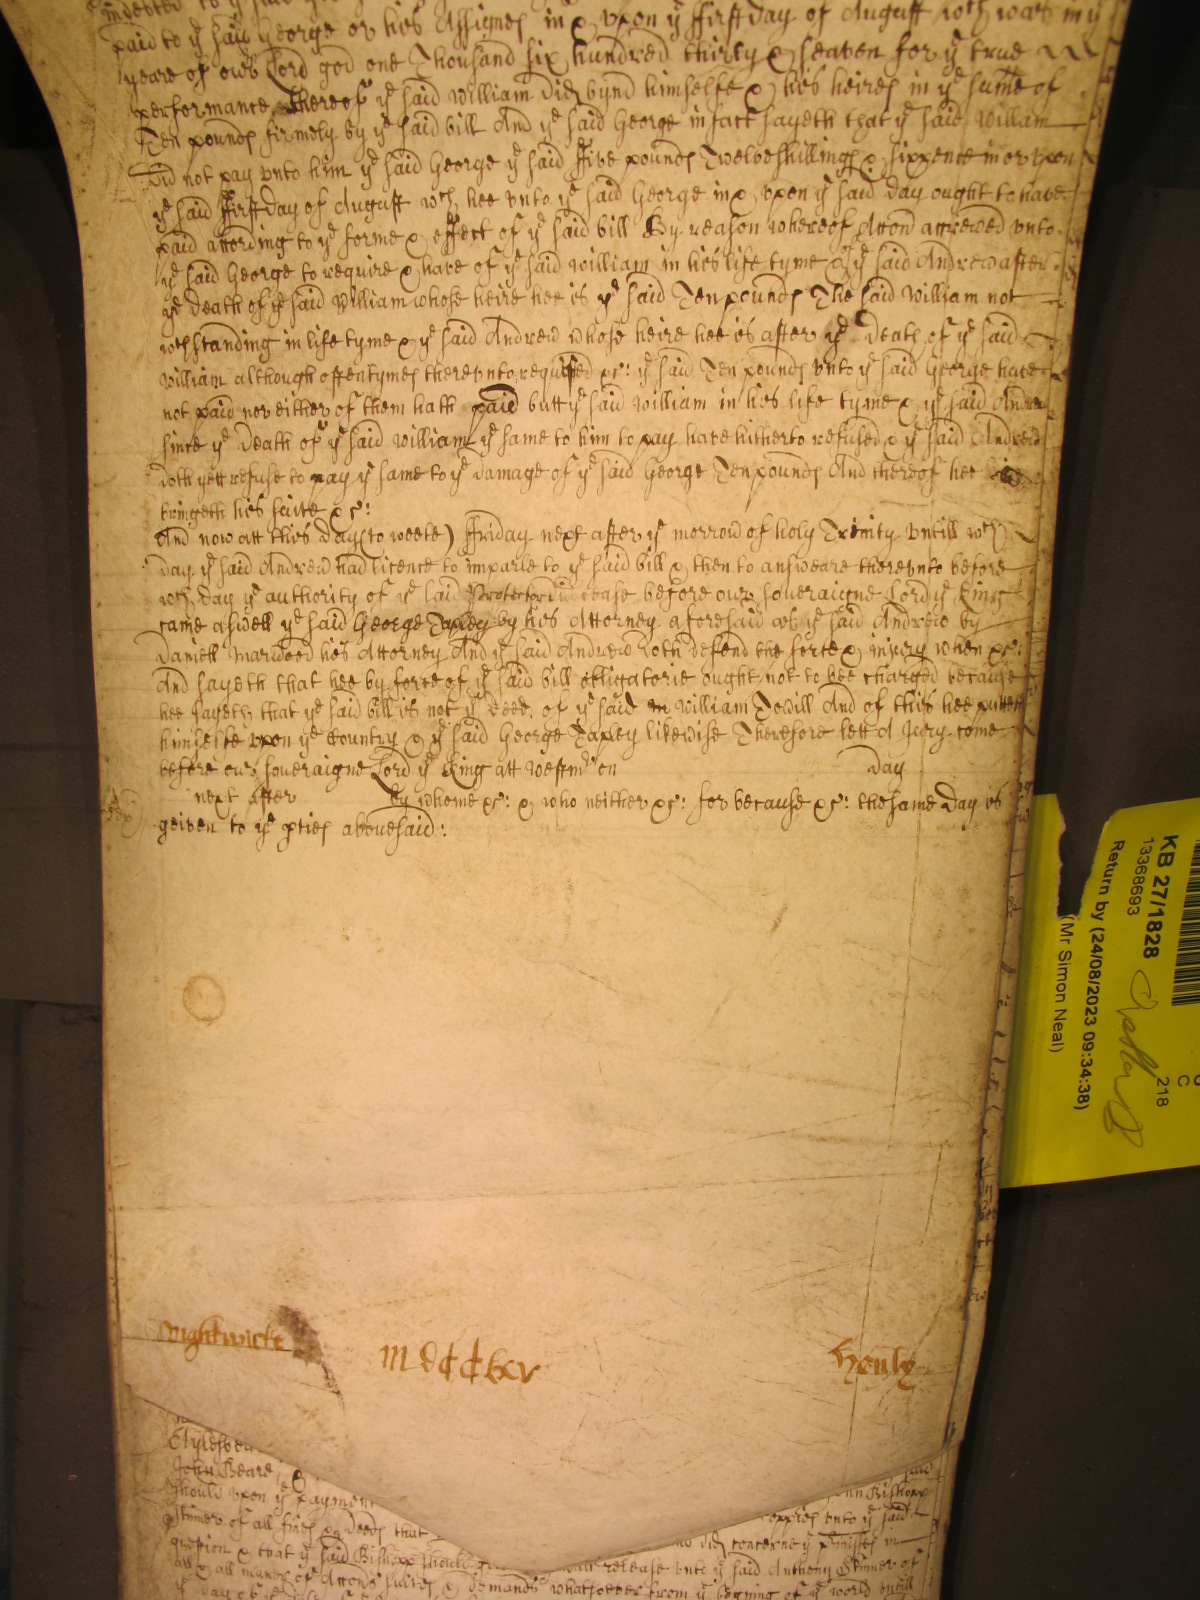 indebted to ye said
paid to ye said George or his Assignes in & upon ye ffirst day of August wch was in ye
yeare of our Lord god one Thousand six hundred thirty & seaven for ye true
performance thereof ye said William did bynd himselfe & his heires in ye sume of
Ten pounds firmely by ye said bill And ye said George in fact sayeth that ye said William
did not pay unto him ye said George ye said ffive pounds Twelve shillings & sixpence in or upon
ye said ffirst day of August wch hee unto ye said George in & upon ye said day ought to have
paid according to ye forme & effect of ye said bill By reason whereof Accon accrewed unto
ye said George to require & have of ye said William in his life tyme & of ye said Andrew after
ye death of ye said William whose heire hee is ye said Ten pounds The said William not
wthstanding in life tyme & ye said Andrew whose heire hee is after ye death of ye said
William although oftentymes thereunto required &c: ye said Ten pounds unto ye said George have
not paid nor either of them hath paid butt ye said William in his life tyme & ye said Andrew
since ye death of ye said William ye same to him to pay have hitherto refused & ye said Andrew
doth yett refuse to pay ye same to ye damage of ye said George Ten pounds And thereof hee
bringeth his suite &c:
And now att this day (to weete) ffriday next after ye morrow of holy Trinity untill wch
day ye said Andrew had licence to imparle to ye said bill & then to answeare thereunto before
wch day ye authority of ye laid Protector did cease before our soveraigne Lord ye King
came aswell ye said George Taxley by his Attorney aforesaid as ye said Andrew by
Daniell Marwood his Attorney And ye said Andrew doth defend the force & injury when &c:
And sayeth that hee by force of ye said bill obligatorie ought not to bee charged because
hee sayeth that ye said bill is not ye deed of ye said William Towill And of this hee putteth
himselfe upon ye Country & ye said George Taxley likewise Therefore lett a Jury come
before our soveraigne Lord ye King att Westmr on day
next after by whome &c: & who neither &c: for because &c: the same day is
geiven to ye pties abovesaid:
KB 27/1828
13368693
Return by (24/08/2023 09:34:38)
(Mr Simon Neal)
218
C
Wightwicke
Henly
John Beare
should upon ye payment
Bishopp
of all fines & deeds that
coppies unto ye said
question & that ye said Bishopp should
did concerne ye pmisses in
all & all maner of Accons suites & demands whatsoever from ye begining of ye world untill
release unto ye said Anthony Skinner of